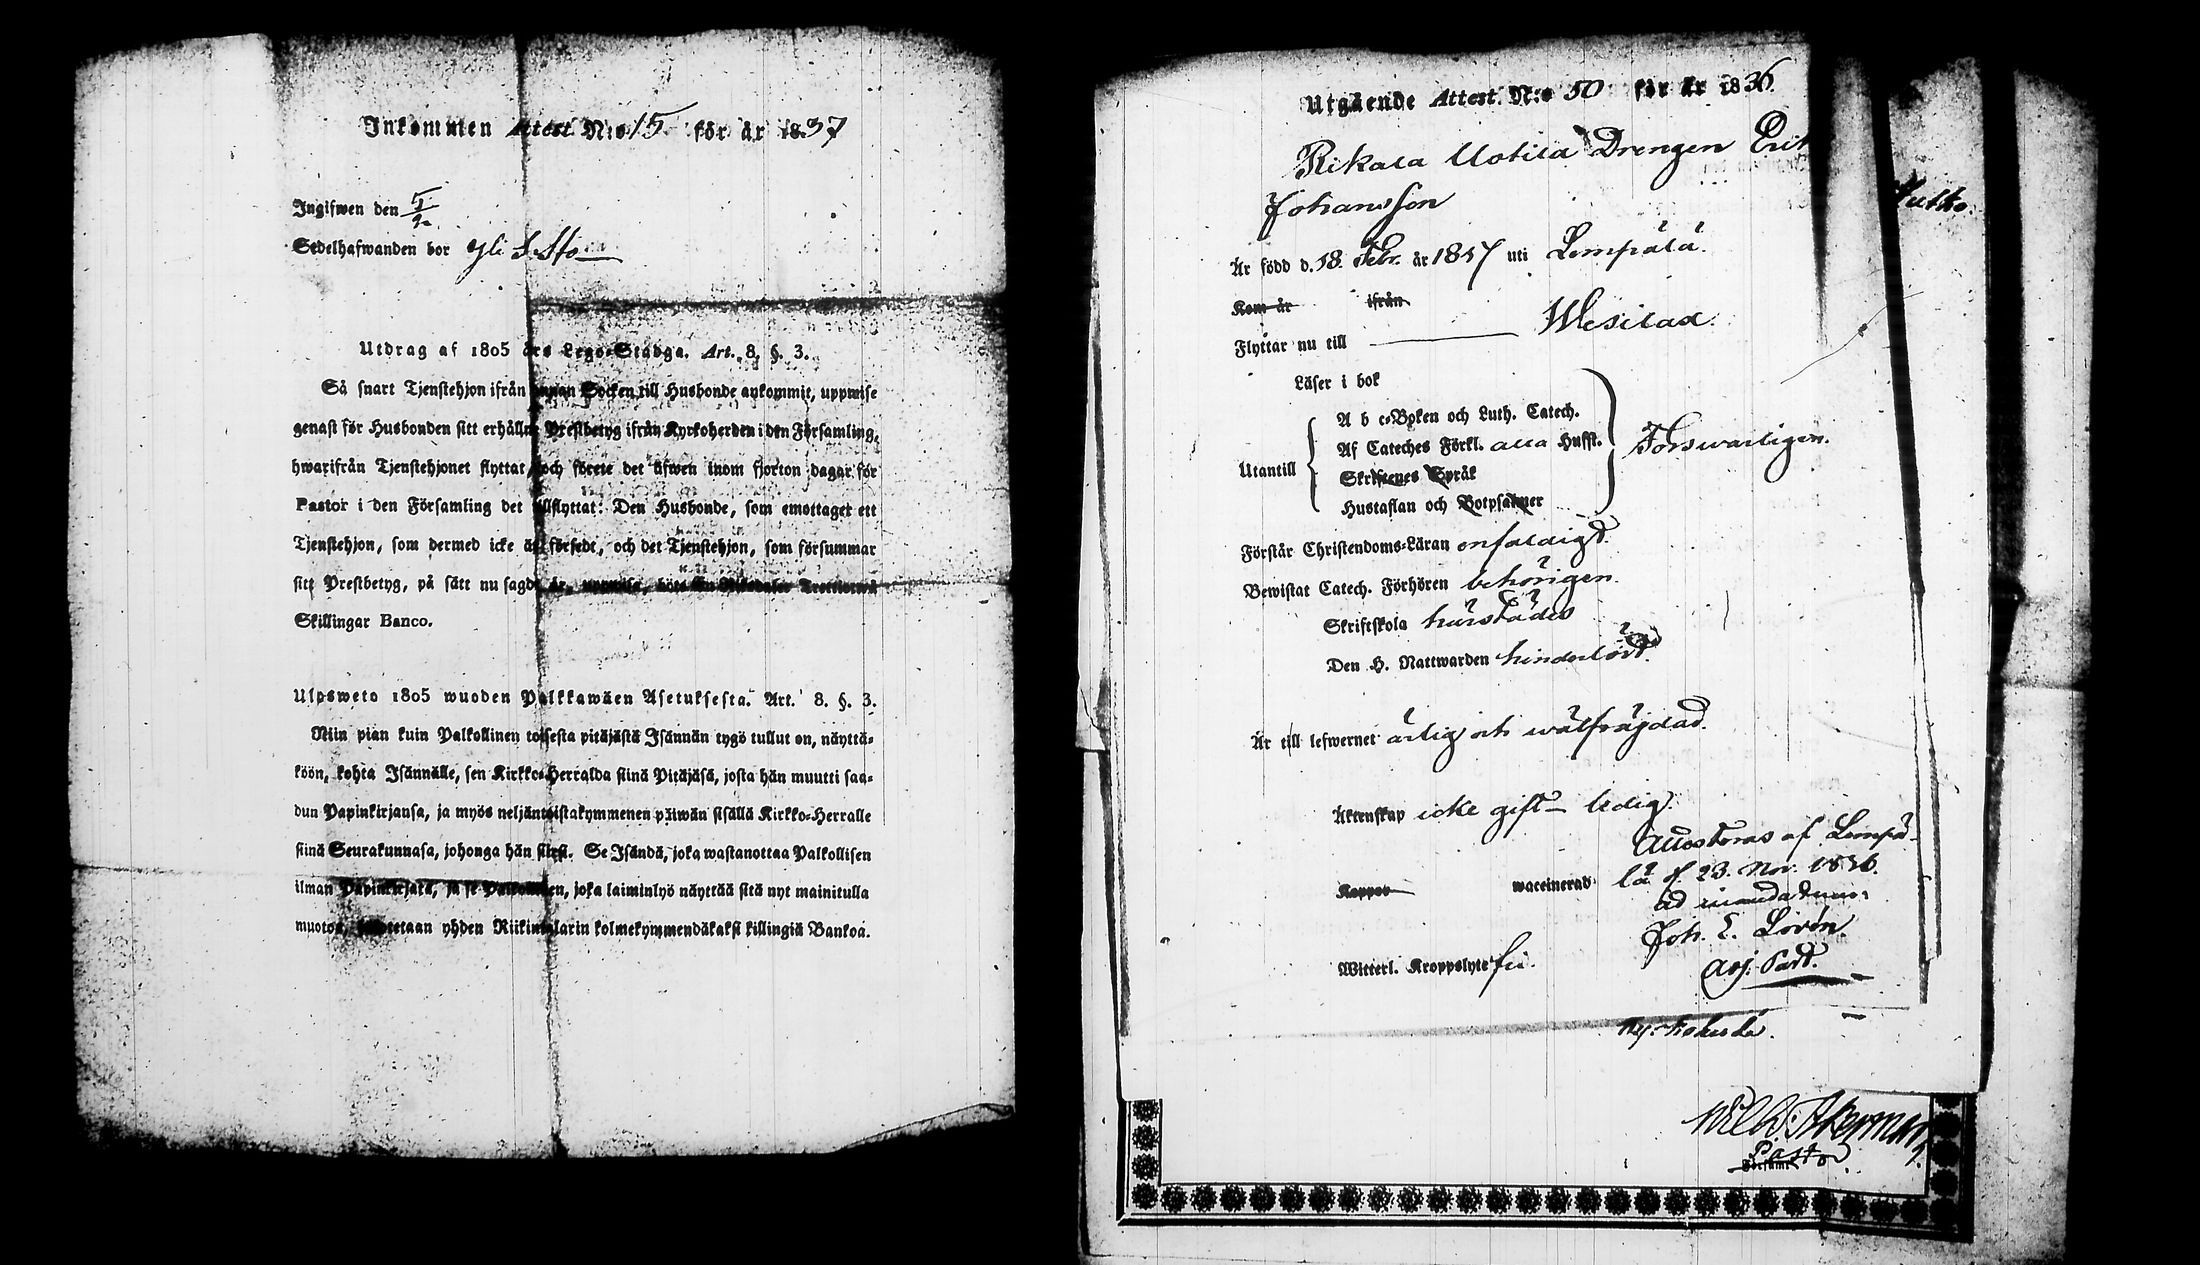 Inkommen Attest N:o 15 för år 1837
Ingifwen den 5/2
Sedelhafwanden bor
Utdrag af 1805 års Lego-Stadga. Art. 8. §. 3.
Så snart Tjenstehjon ifrån annan Socken till Husbonde ankommit, uppwise
genast för Husbonden sitt erhållne Prestbetyg ifrån Kyrkoherden i den Församling,
hwarifrån Tjenstehjonet flyttat, och förete det äfwen inom fjorton dagar för
Pastor i den Församling det tillflyttat: Den Husbonde, som emottager ett
Tjenstehjon, som dermed icke är försedt, och det Tjenstehjon, som försummar
sitt Prestbetyg, på sätt nu sagdt är, uppwisa, böte En Riksdaler Trettiotwå
Skillingar Banco.
Ulosweto 1805 wuoden Palkkawäen Asetuksesta. Art. 8. §. 3.
Niin pian kuin Palkollinen toisesta pitäjästä Isännän tygö tullut on, näyttä-
köön, kohta Isännälle, sen Kirkko-Herralda siinä Pitäjäsä, josta hän muutti saa-
dun Papinkirjansa, ja myös neljäntoistakymmenen päiwän sisällä Kirkko-Herralle
siinä Seurakunnasa, johonga hän siirsi. Se Isändä, joka wastanottaa Palkollisen
ilman Papinkirjata, ja se Palkollinen, joka laiminlyö näyttää sitä nyt mainitulla
muotoa, yhden Riikintalarin kolmekymmendäkaksi killingiä Bankoa.
Utgående Attest. N:o 50 för år 1836
Rikala Uotila Drengen Erik
Johansson
Är född d. 18. Febr. år 1817 uti Lempälä.
Kom år ifrån
Flyttar nu till Wesilax.
Läser i bok
A b c-Boken och Luth. Catech.
Af Cateches Förkl. alla Hufst.
Utantill
Skriftenes Språk
Hustaflan och Botpsalmer
Förswarligen.
Förstår Christendoms-Läran enfaldigt.
Bewistat Catech. Förhören behörigen.
Skriftskola härstädes
Den H. Nattwarden hinderlöst.
Är till lefwernet ärlig och wälfrägdad.
Äktenskap icke gift - ledig.
Attesteras af Lempä-
lä d. 23. Nov. 1836.
Koppor waccinerad
ad mandatum:
Joh. E. Lorén.
Adj. Past.
Witterl. Kroppslyte fri.
Wilh. Åkerman
Pastor